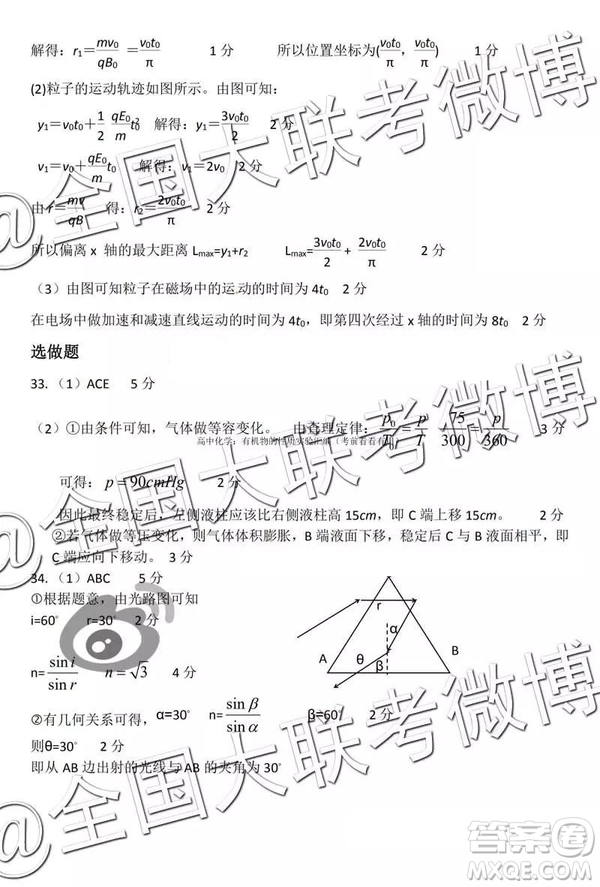 解得：r₁=mv₀/qB₀ =v₀t₀/π 1 分 所以位置坐标为(v₀t₀/π，v₀t₀) 1 分
(2)粒子的运动轨迹如图所示。由图可知：
y₁=v₀t₀+1/2 qE₀/m t₀² 解得：y₁=3v₀t₀/2 2 分
v₁=v₀+qE₀/m t₀ 解得：v₁=2v₀ 2 分
由 r=mv/qB 得：r₂=2v₀t₀/π 2 分
所以偏离 x 轴的最大距离 Lmax=y₁+r₂ Lmax=3v₀t₀/2 + 2v₀t₀/π 2 分
（3）由图可知粒子在磁场中的运动的时间为 4t₀ 2 分
在电场中做加速和减速直线运动的时间为 4t₀，即第四次经过 x 轴的时间为 8t₀ 2 分
选做题
33.（1）ACE 5 分
（2）①由条件可知，气体做等容变化。 由查理定律：p₀/T₀=p/T 75/300=p/360 3 分
高中化学：有机物的性质实验汇编（考前看看有
可得：p=90cmHg 2 分
因此最终稳定后，左侧液柱应该比右侧液柱高 15cm，即 C 端上移 15cm。 2 分
②若气体做等压变化，则气体体积膨胀，B 端液面下移，稳定后 C 与 B 液面相平，即
C 端应向下移动。 3 分
34.（1）ABC 5 分
①根据题意，由光路图可知
i=60° r=30° 2 分
n=sin i/sin r n=√3 4 分
r
α
A
θ
β
B
②有几何关系可得，α=30° n=sin β/sin α β=60° 2 分
则θ=30° 2 分
即从 AB 边出射的光线与 AB 的夹角为 30°
@全国大联考微博
@全国大联考微博
@全国大联考微博
答案圈
MXQE.COM